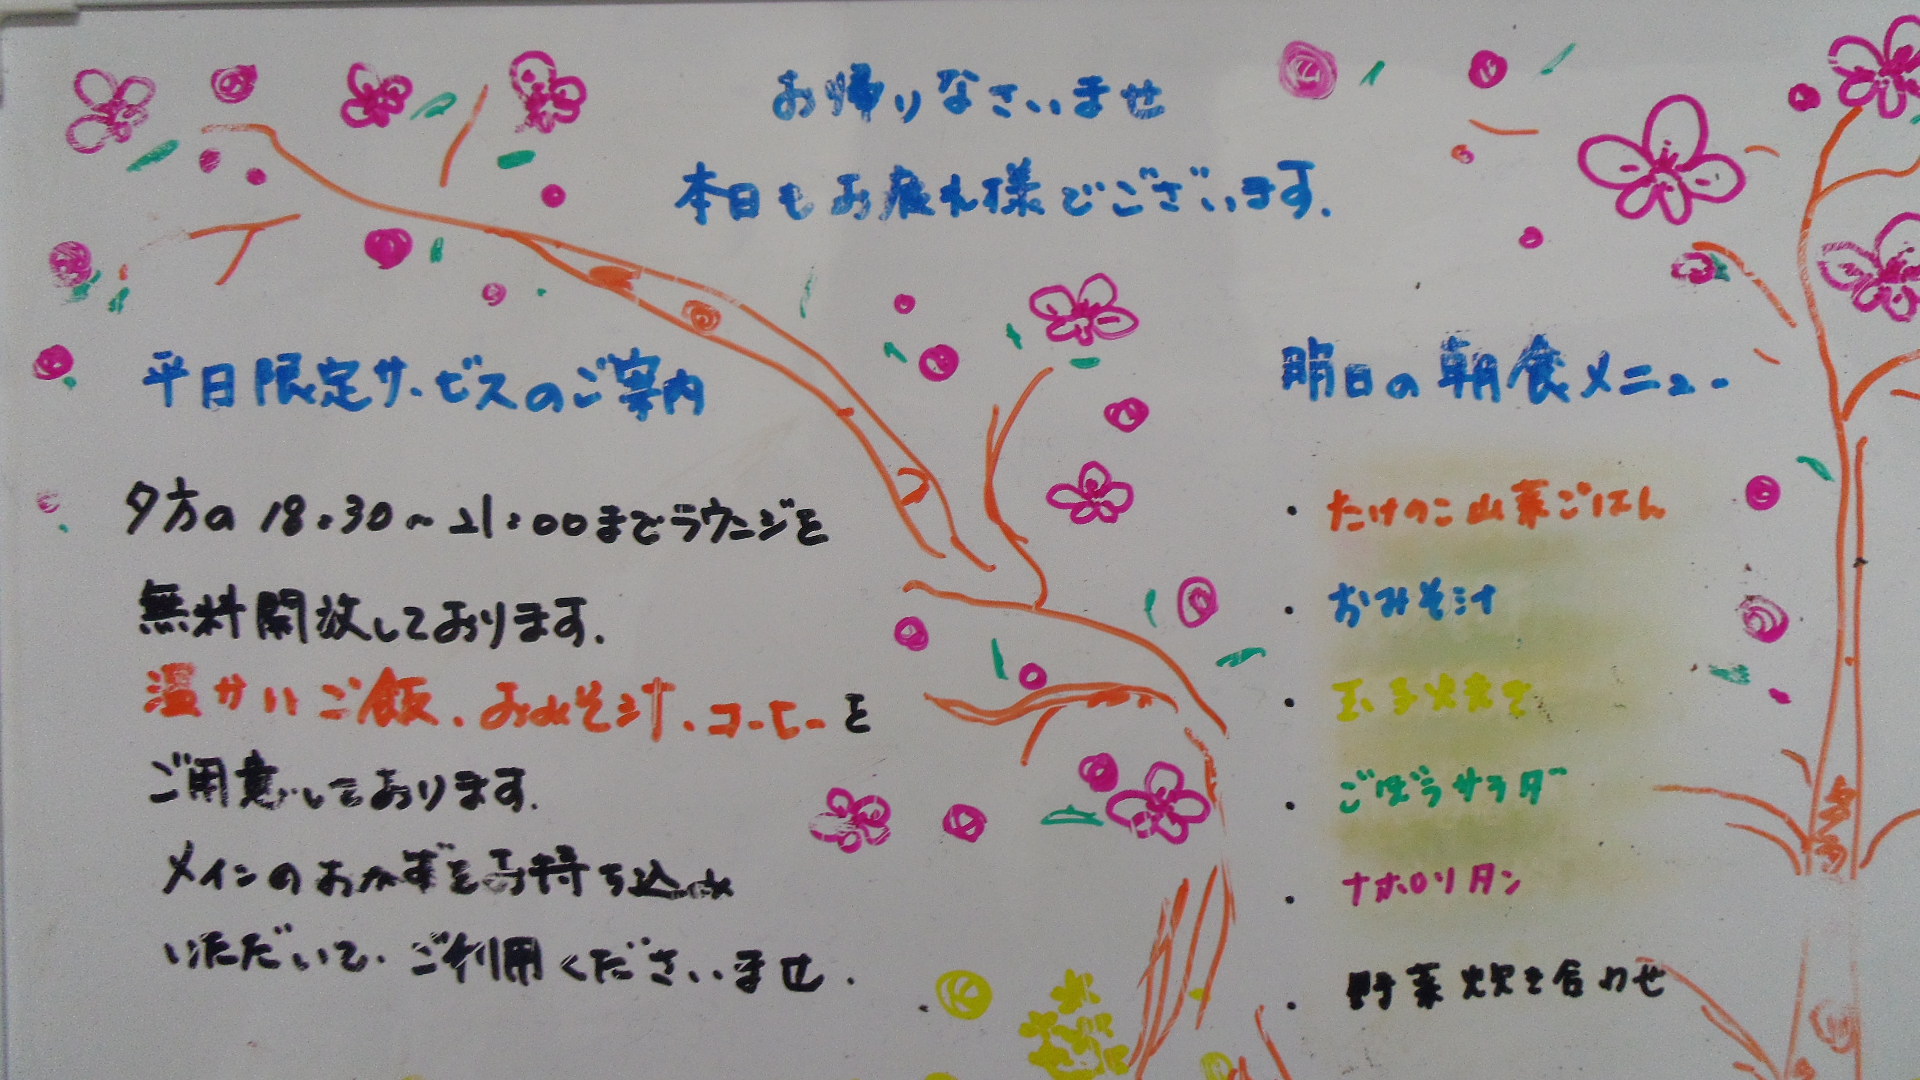 お帰りなさいませ
本日もお疲れ様でございます.
平日限定サービスのご案内
夕方の 18:30~21:00までラウンジを
無料開放しております.
温かいご飯、おみそ汁、コーヒーを
ご用意しております.
メインのおかずをお持ち込み
いただいて、ご利用くださいませ.
明日の朝食メニュー
・たけのこ山菜ごはん
・おみそ汁
・玉子焼き
・ごぼうサラダ
・ナポリタン
・野菜炊き合わせ